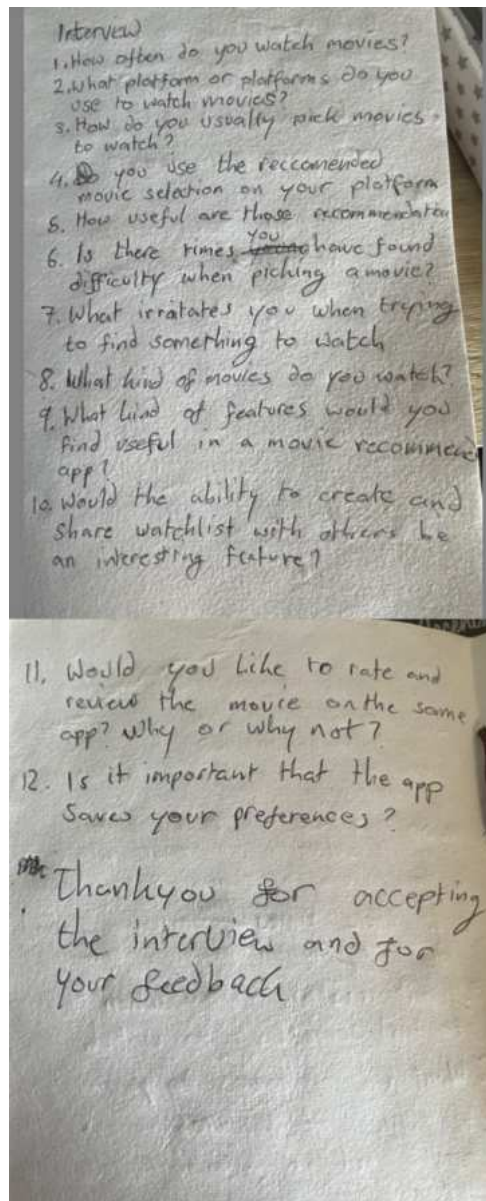 Interveiw
1. How often do you watch movies?
2. What platform or platforms do you
use to watch movies?
3. How do you usually pick movies
to watch?
4. Do you use the reccomended
movie selection on your platform
5. How useful are those recommendation
6. Is there times you have found
difficulty when piching a movie?
7. What irratates you when trying
to find something to watch
8. What kind of movies do you watch?
9. What kind of features would you
find useful in a movie recommend
app?
10. Would the ability to create and
share watchlist with others be
an interesting feature?
11. Would you like to rate and
review the movie on the same
app? Why or why not?
12. Is it important that the app
saves your preferences?
Thankyou for accepting
the interview and for
your feedback